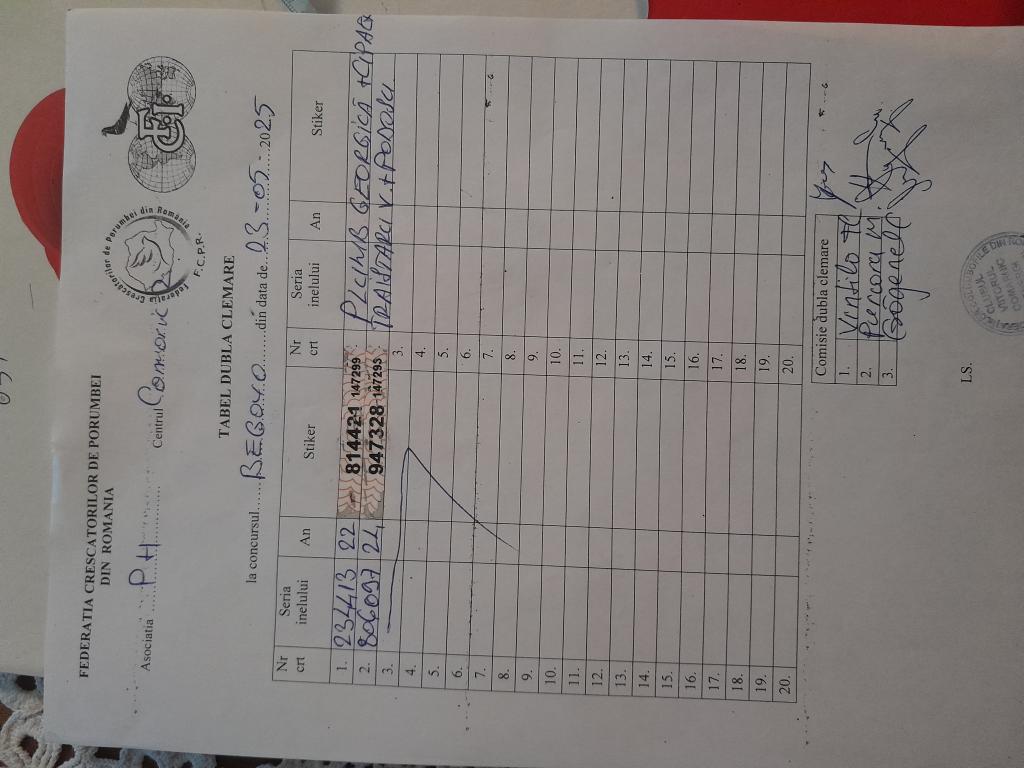 FEDERATIA CRESCATORILOR DE PORUMBEI
DIN ROMANIA
Federatia Crescatorilor de Porumbei din România
F.C.P.R.
FCI
Asociatia PH Centrul Comarnic
TABEL DUBLA CLEMARE
la concursul din data de 23-05-2025
Nr crt Seria inelului An Stiker Nr crt Seria inelului An Stiker
1. 234413 22 814421 147299 PLUMB GEORGICĂ
2. 806097 24 947328 147299
3. 3.
4. 4.
5. 5.
6. 6.
7. 7.
8. 8.
9. 9.
10. 10.
11. 11.
12. 12.
13. 13.
14. 14.
15. 15.
16. 16.
17. 17.
18. 18.
19. 19.
20. 20.
Comisie dubla clemare
1. Vintilo
2.
3.
LS.